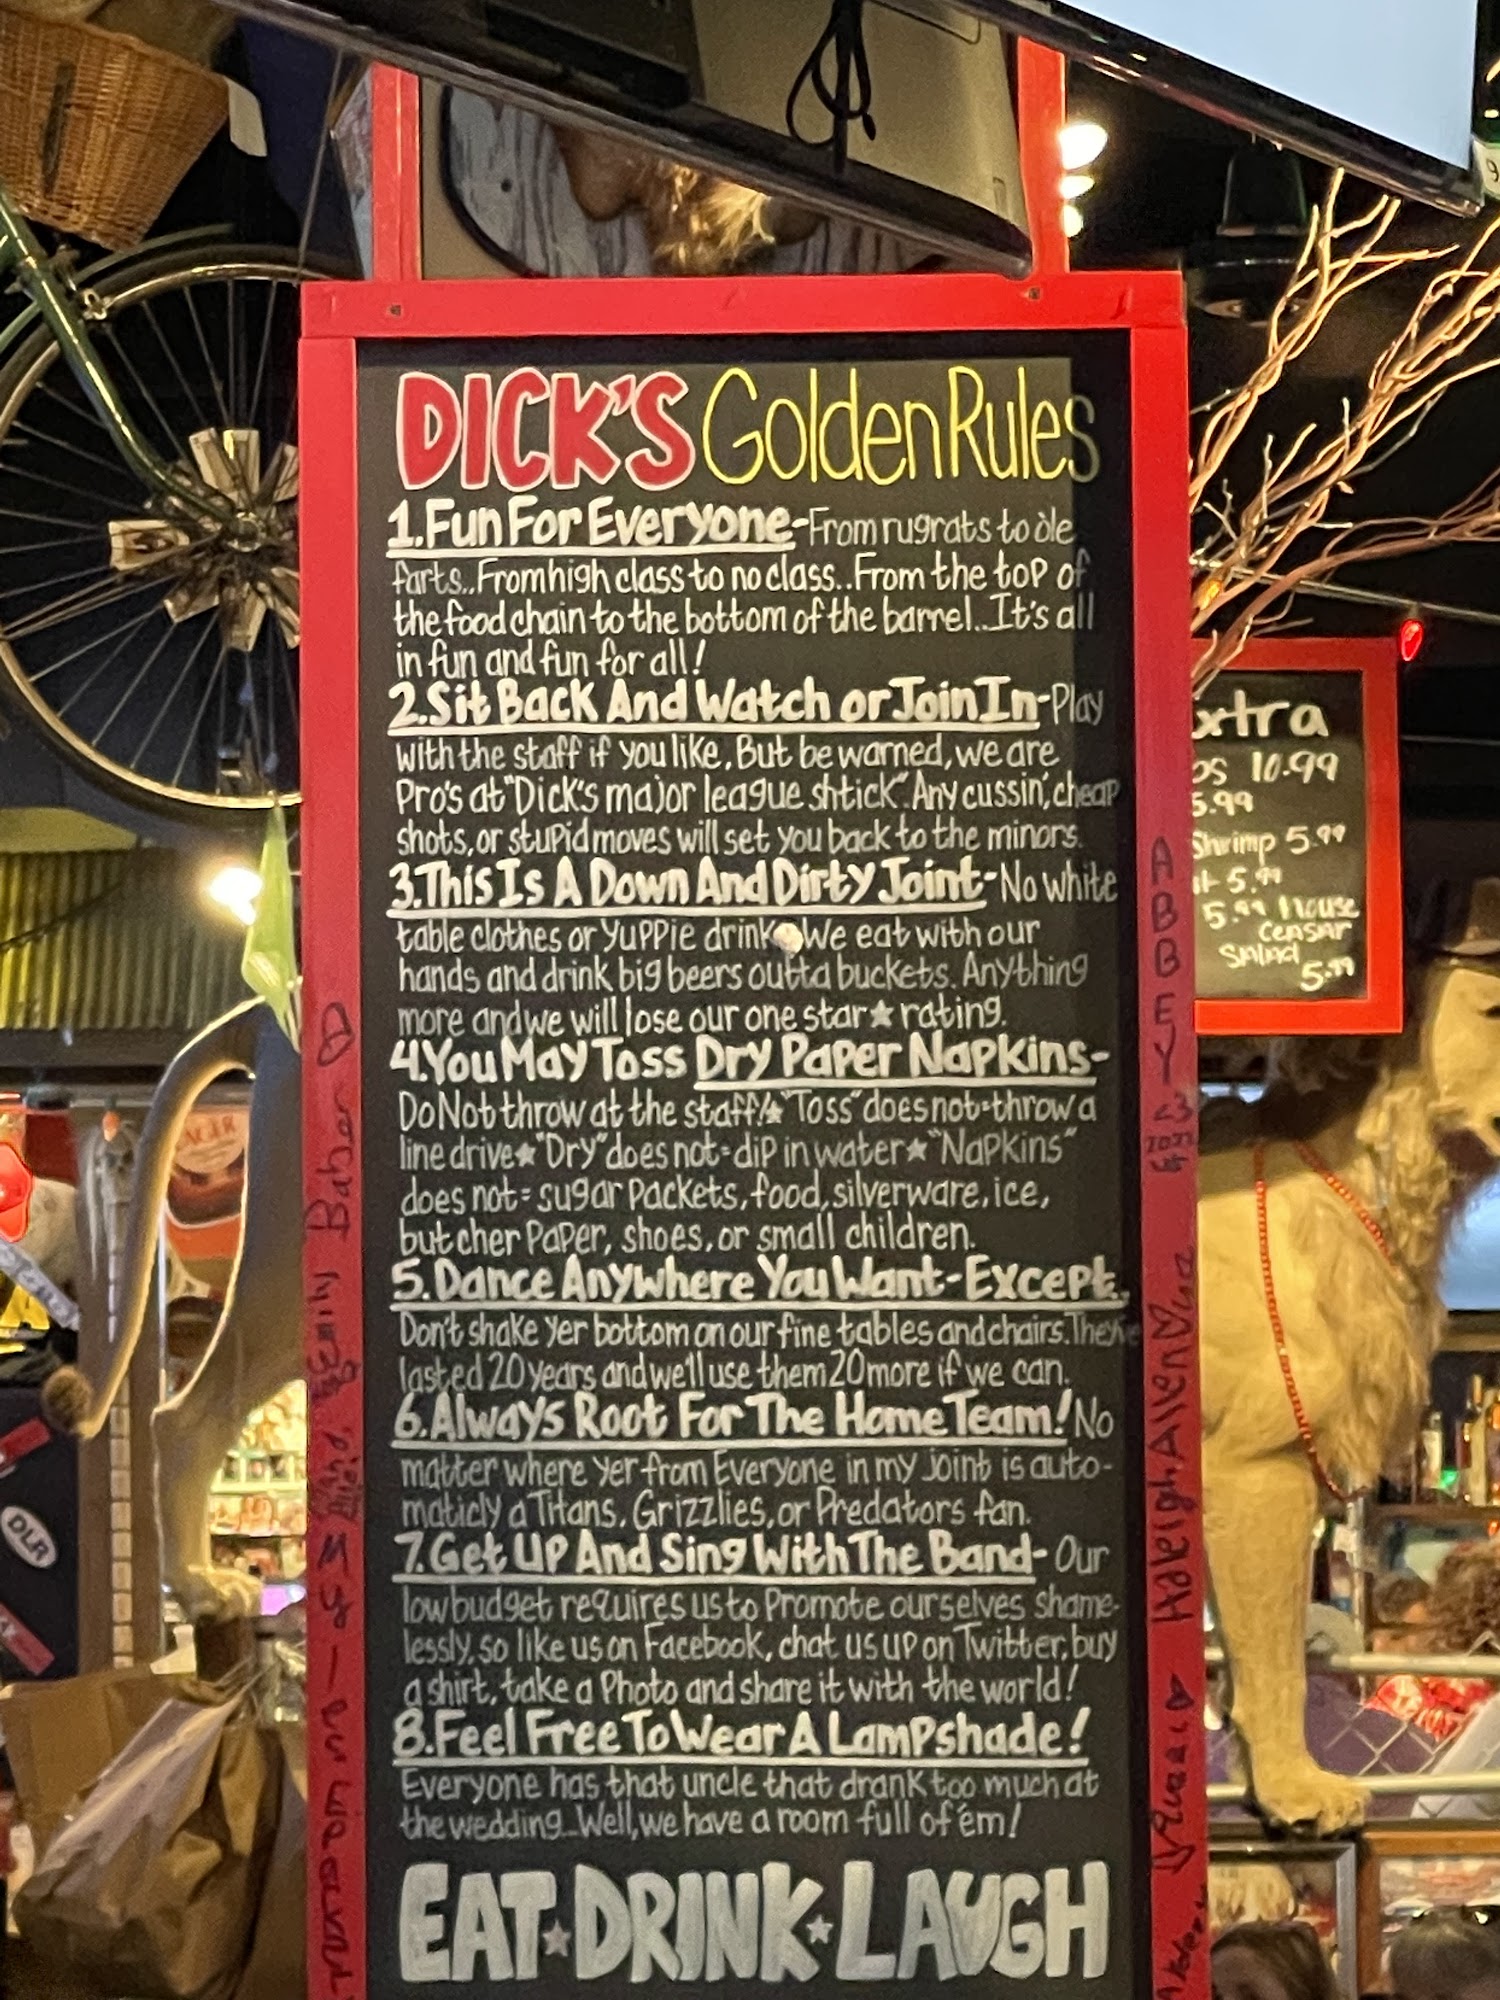 DICK'S Golden Rules
1. Fun For Everyone - From rugrats to ole
farts.. From high class to no class.. From the top of
the food chain to the bottom of the barrel... It's all
in fun and fun for all!
2. Sit Back And Watch or Join In - Play
with the staff if you like, But be warned, we are
Pro's at "Dick's major league shtick". Any cussin', cheap
shots, or stupid moves will set you back to the minors.
3. This Is A Down And Dirty Joint - No white
table clothes or Yuppie drink We eat with our
hands and drink big beers outta buckets. Anything
more and we will lose our one star ★ rating.
4. You May Toss Dry Paper Napkins -
Do Not throw at the staff! ★ "Toss" does not = throw a
line drive ★ "Dry" does not = dip in water ★ "Napkins"
does not = sugar packets, food, silverware, ice,
butcher Paper, shoes, or small children.
5. Dance Anywhere You Want - Except..
Don't shake yer bottom on our fine tables and chairs. They've
lasted 20 years and we'll use them 20 more if we can.
6. Always Root For The Home Team! No
matter where yer from Everyone in my joint is auto-
maticly a Titans, Grizzlies, or Predators fan.
7. Get Up And Sing With The Band - Our
low budget requires us to Promote ourselves shame-
lessly, so like us on Facebook, chat us up on Twitter, buy
a shirt, take a Photo and share it with the world!
8. Feel Free To Wear A Lampshade!
Everyone has that uncle that drank too much at
the wedding... Well, we have a room full of 'em!
EAT ★ DRINK ★ LAUGH
xtra
10.99
5.99
Shrimp 5.99
5.99
5.99 House
Ceasar
Salad
5.99
ABBEY <3
2022
Haleigh Allen
Emily Baber
DLR
9